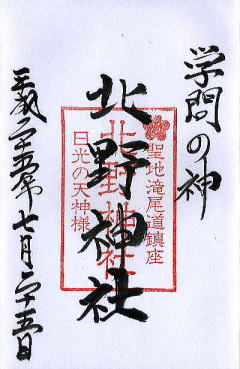 学問の神
聖地滝尾道鎮座
北野神社
北野神社
日光の天神様
平成二十五年七月二十五日